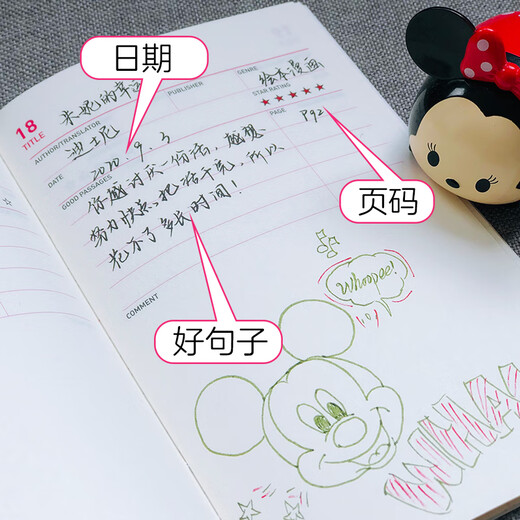 日期
GENRE
绘本漫画
PUBLISHER
STAR RATING
★★★★★
18
TITLE
米妮的幸
AUTHOR/TRANSLATOR
迪士尼
DATE
2020. 9. 3
PAGE
P92
GOOD PASSAGES
你越讨厌一份活，越想
努力快点把活干完，所以
花不了多长时间！
页码
好句子
COMMENT
Whoopee!